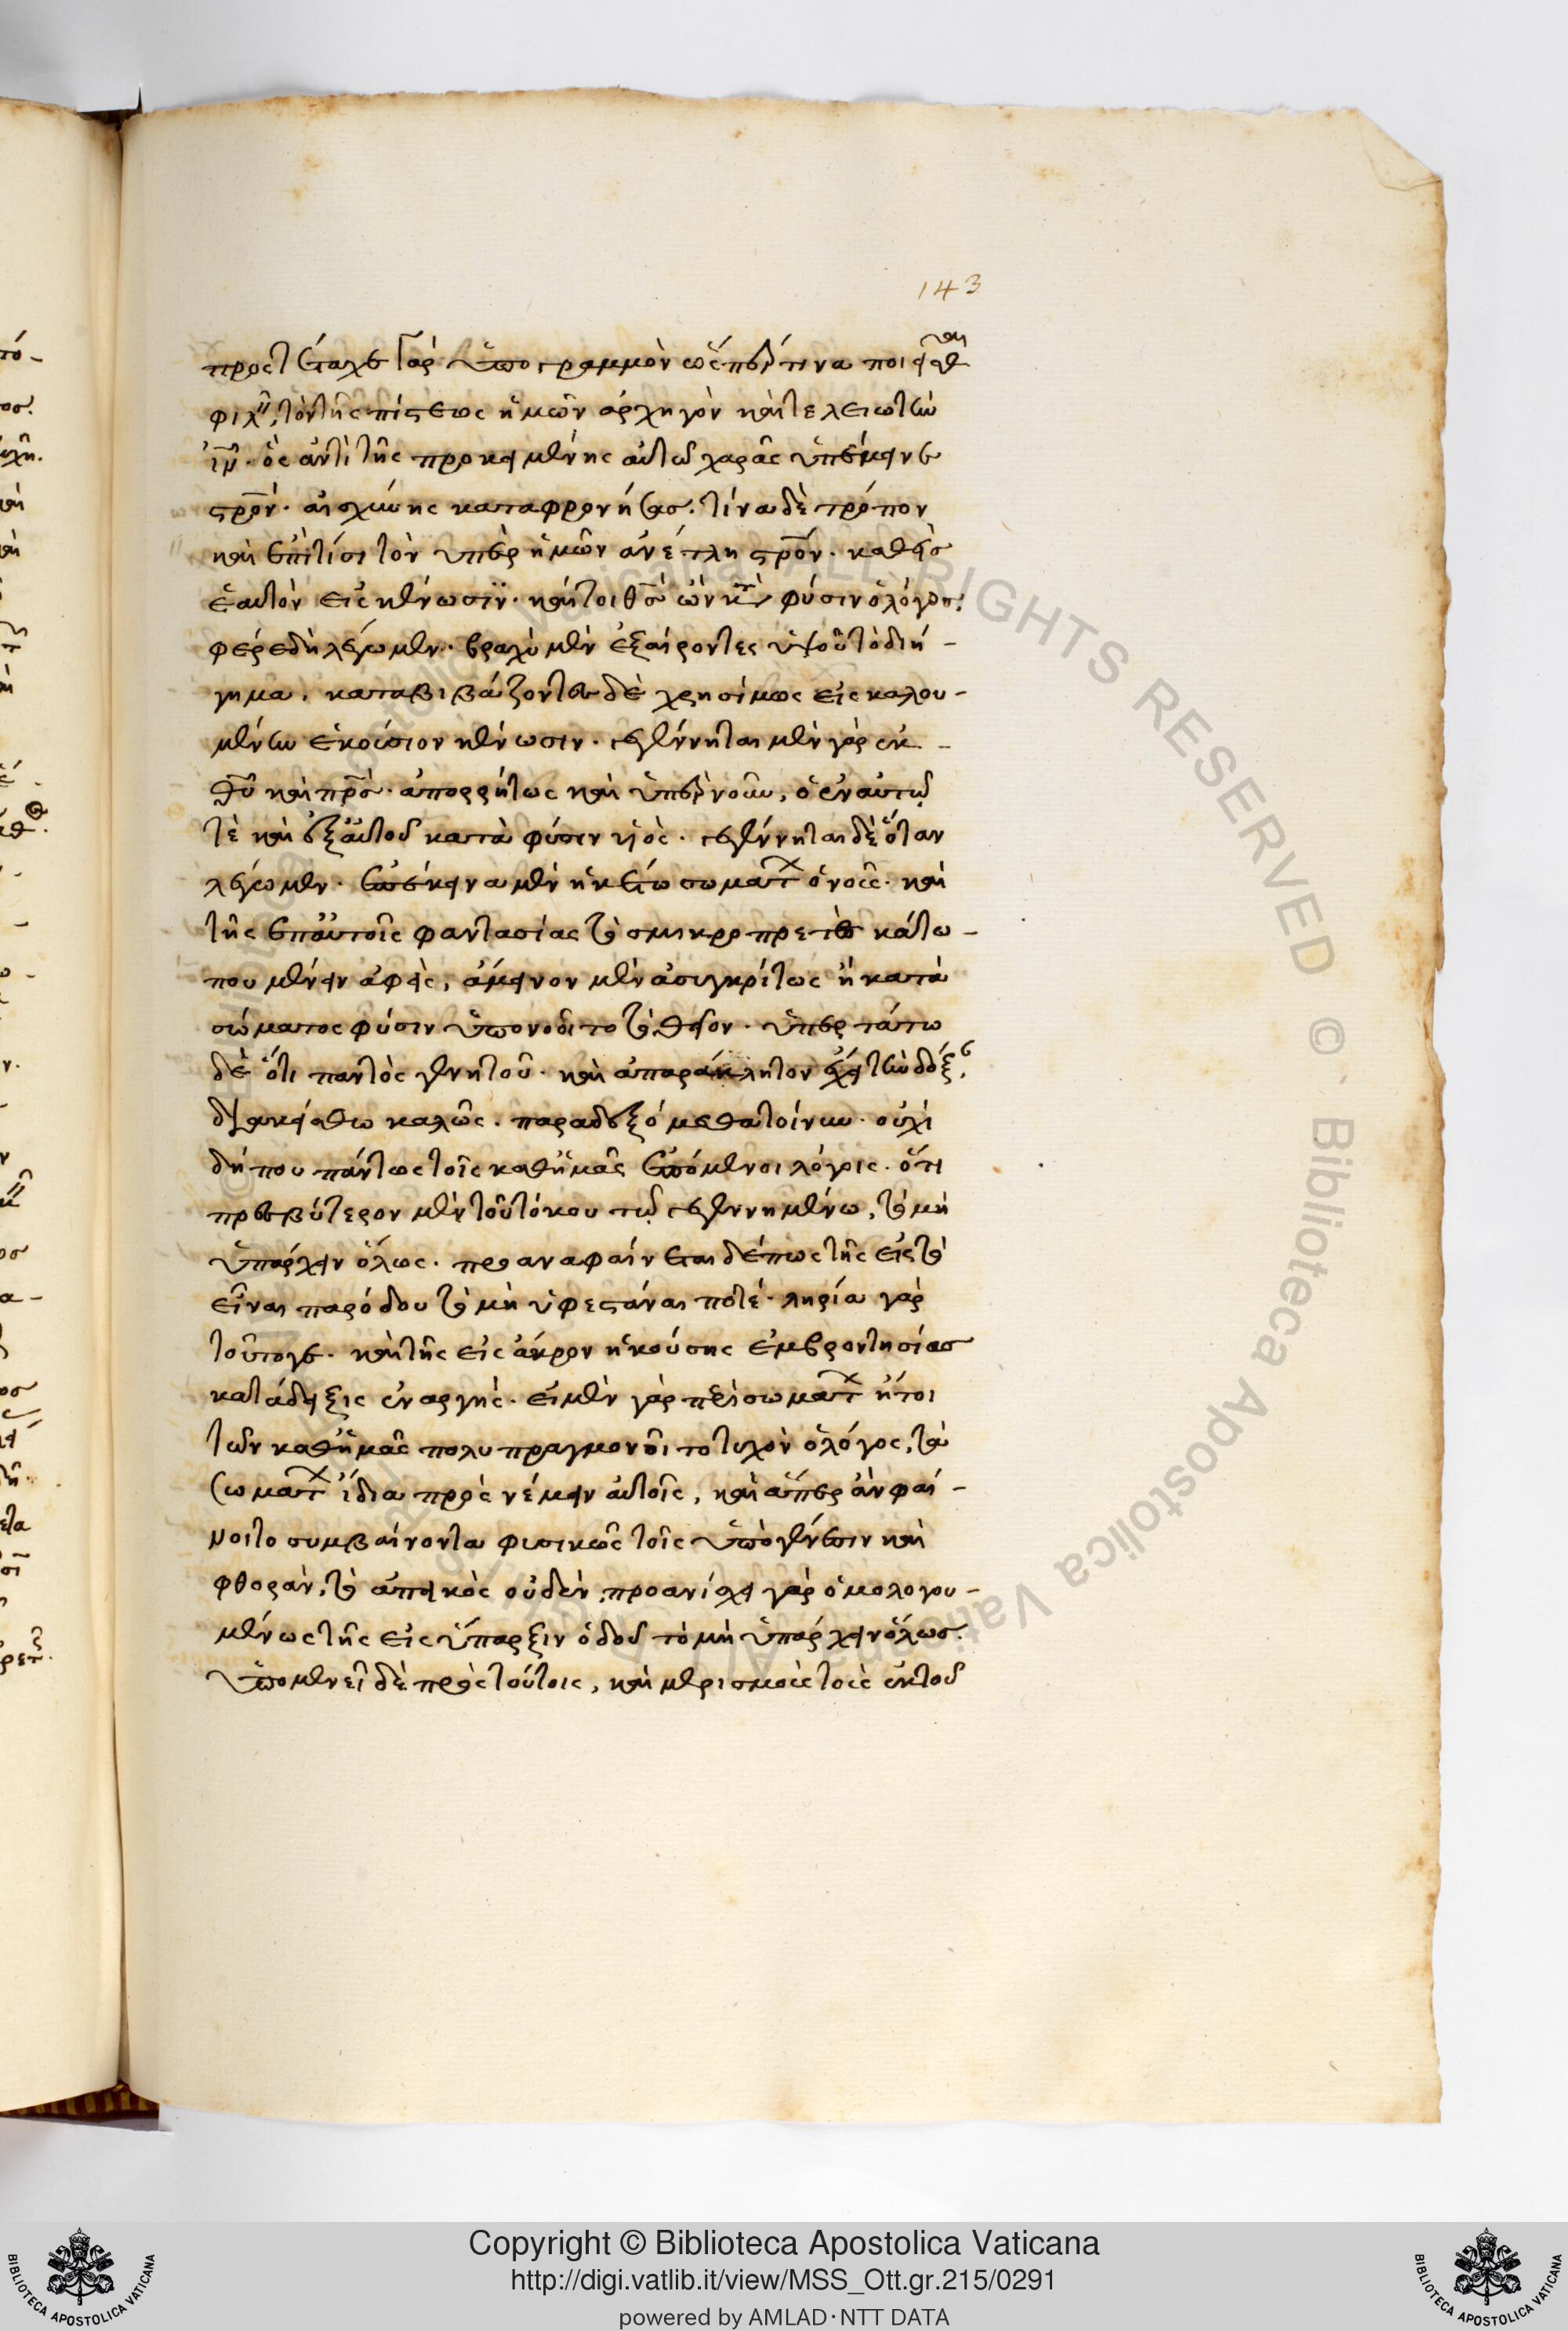 143
προστέταχε γὰρ ὑπογραμμὸν ὥσπέρ τινα ποιεῖσθαι
φιλ, τὸν τῆς πίστεως ἡμῶν ἀρχηγὸν καὶ τελειωτὴν
ἰν̄. ὃς ἀντὶ τῆς προκειμένης αὐτῶ χαρᾶς ὑπέμεινε
στρο̄ν. αἰσχύνης καταφρονήσας. τίνα δὲ τρόπον
καὶ ἐπὶ τίσι τὸν ὑπὲρ ἡμῶν ἀνέτλη στρο̄ν. καθεὶς
ἑαυτὸν εἰς κένωσιν. καίτοι θσ̄ ὢν κατὰ φύσιν ὁ λόγος.
φέρε δὴ λέγωμεν. βραχὺ μὲν ἐξαίροντες ὑψοῦ τὸ διή-
γημα. καταβιβάζοντες δὲ χρησίμως εἰς καλου-
μένην ἑκούσιον κένωσιν. γεγέννηται μὲν γὰρ ἐκ
θῡ καὶ πρ̄σ. ἀπορρήτως καὶ ὑπὲρ νοῦν, ὁ ἐν αὐτῶ
τὲ καὶ ἐξ αὐτοῦ κατὰ φύσιν υἱός. γεγέννηται δὲ ὅταν
λέγωμεν. ἐπέκεινα μὲν ἡκέτω σωματ ὁ νοῦς. καὶ
τῆς ἐπ' αὐτοῖς φαντασίας τὸ σμικροπρεπὲς κάτω
που μένειν ἀφεὶς, ἄμεινον μὲν ἀσυγκρίτως ἢ κατὰ
σώματος φύσιν ὑπονοείτο τὸ θεῖον. ὑπὲρ πάντα
δὲ ὅτι παντὸς γενητοῦ. καὶ ἀπαράκλητον ἔχει τὴν δόξ
διακείσθω καλῶς. παραδεξόμεθα τοίνυν. οὐχὶ
δή που πάντως τοῖς καθ' ἡμᾶς ἑπόμενοι λόγοις. ὅτι
πρεσβύτερον μὲν τοῦ τόκου τῶ γεγεννημένω, τὸ μὴ
ὑπάρχειν ὅλως. προαναφαίνεται δέ πως τῆς εἰς τὸ
εἶναι παρόδου τὸ μὴ ὑφεστάναι ποτέ. ληρία γὰρ
τοῦτό γε. καὶ τῆς εἰς ἄκρον ἡκούσης ἐμβροντησίας
κατάδειξις ἐναργής. εἰ μὲν γὰρ περὶ σωματ ἤτοι
τῶν καθ' ἡμᾶς πολυπραγμονοῖτο τυχὸν ὁ λόγος, τὰ
σωματ ἴδια προσνέμειν αὐτοῖς, καὶ ἅπερ ἂν φαί-
νοιτο συμβαίνοντα φυσικῶς τοῖς ὑπὸ γένεσιν καὶ
φθορὰν, τὸ ἀπεικὸς οὐδέν. προανίσχει γὰρ ὁμολογου-
μένως τῆς εἰς ὕπαρξιν ὁδοῦ τὸ μὴ ὑπάρχειν ὅλως.
ὑπομενεῖ δὲ πρὸς τούτοις, καὶ μερισμοὺς τοὺς ἐκ τοῦ
Copyright © Biblioteca Apostolica Vaticana
http://digi.vatlib.it/view/MSS_Ott.gr.215/0291
powered by AMLAD·NTT DATA